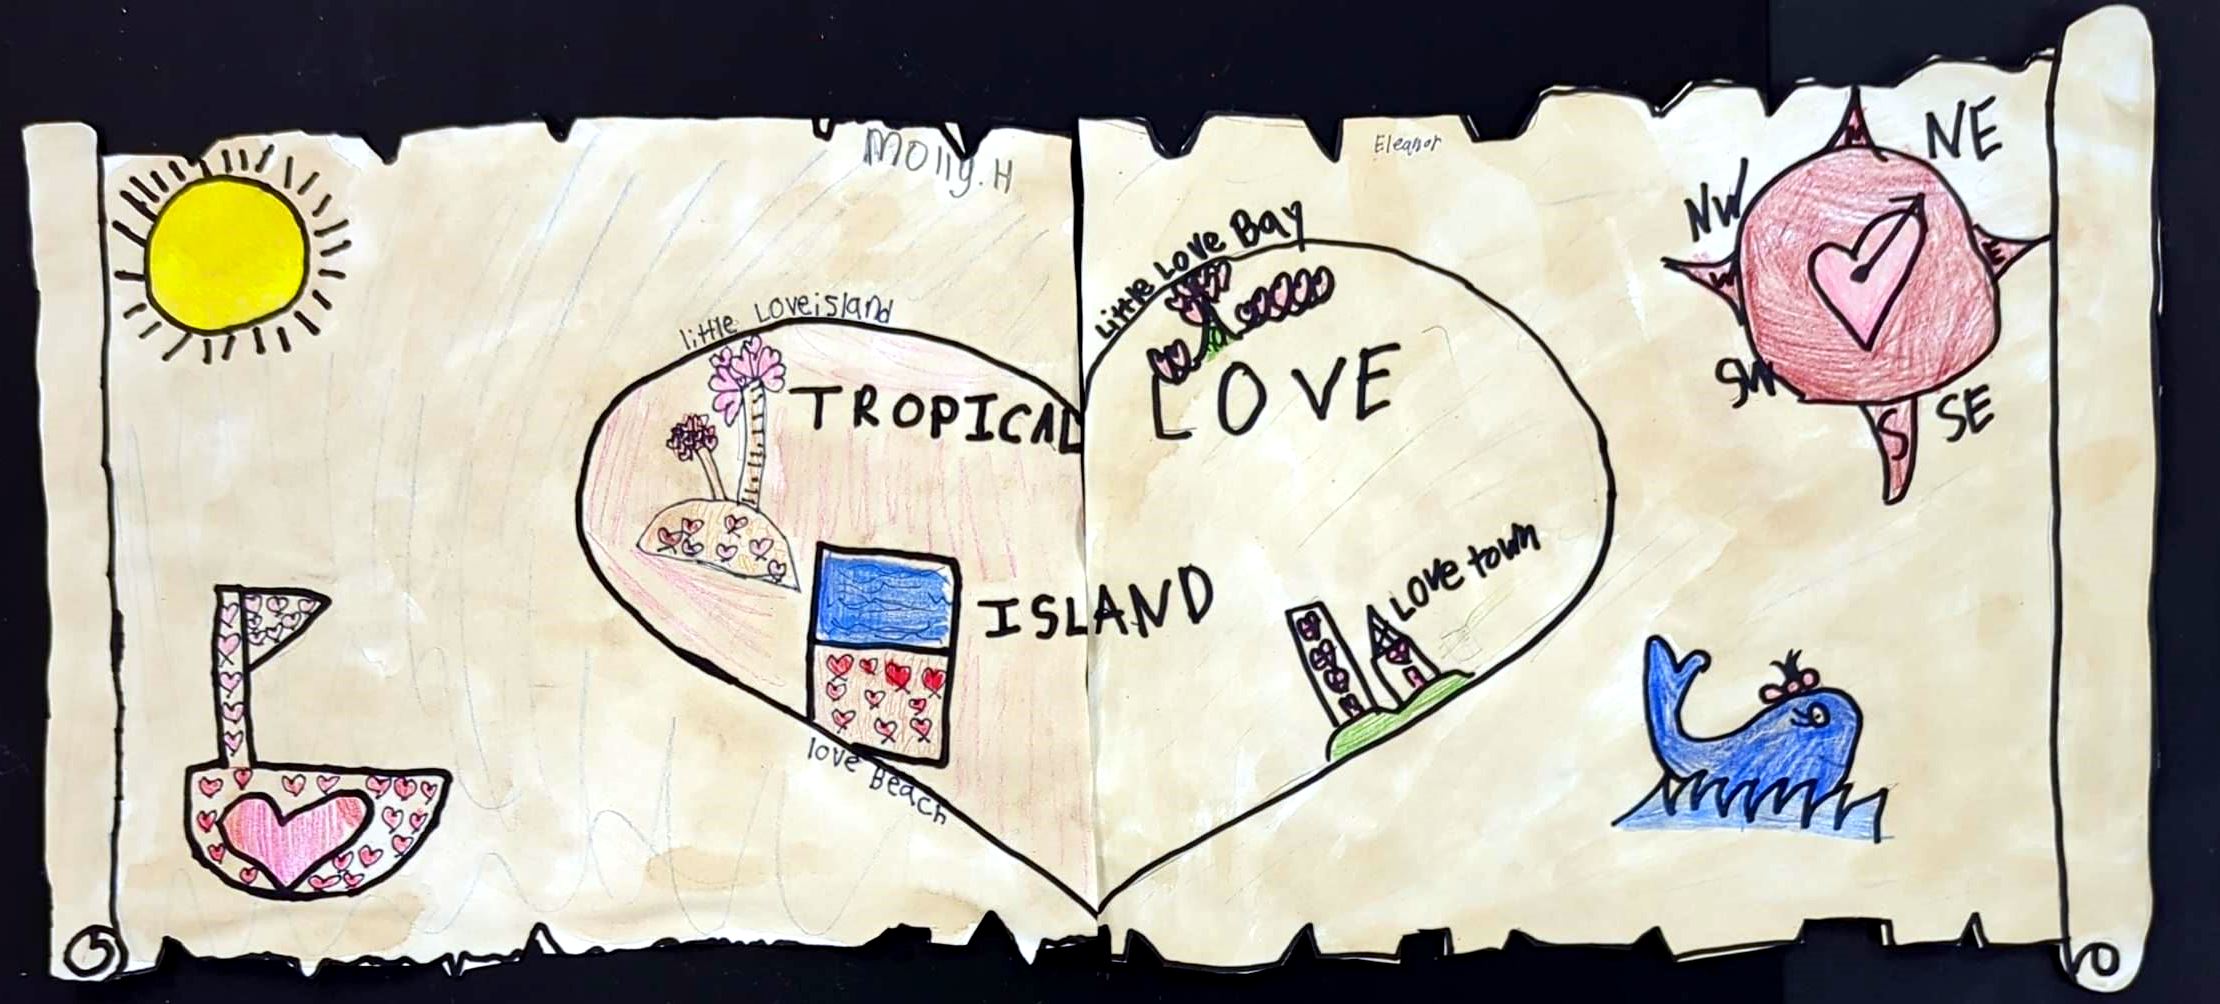 Molly.H
Eleanor
little Loveisland
Little Love Bay
TROPICAL LOVE
ISLAND
love Beach
Love town
N
NE
E
SE
S
SW
W
NW